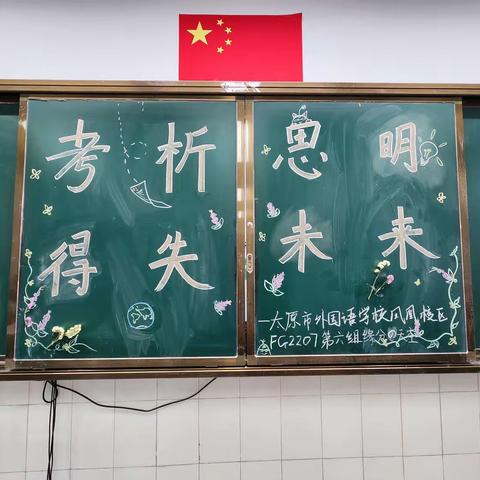 考析
得失
思明
未来
—太原市外国语学校校区
FG2207第六组